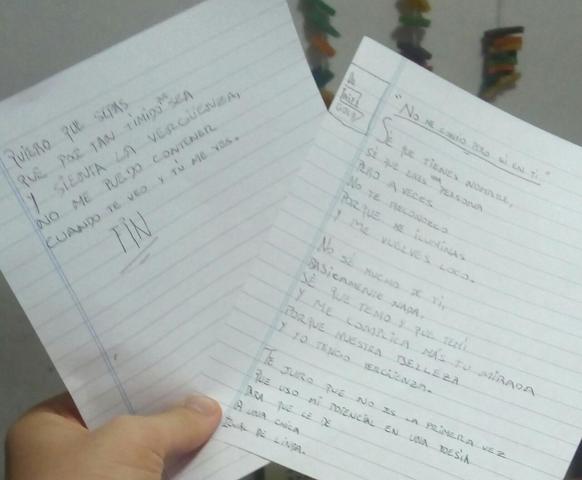 "No me confío pero sí en ti."
Sé que tienes nombre,
Sé que eres una persona
Pero a veces
No te preconozco
Porque me iluminas
Y me vuelves loco.
No sé mucho de ti,
Basicamente nada,
Sé que temo y que temí
Y me complica más tu mirada
Porque muestra belleza
Y yo tengo vergüenza.
Te juro que no es la primera vez
Que uso mi potencial en una poesía
Para que le de
A una chica
Igual de linda.
Quiero que sepas
Que por tan tímido que sea
Y sienta la vergüenza,
No me puedo contener
Cuando te veo y tú me ves.
FIN